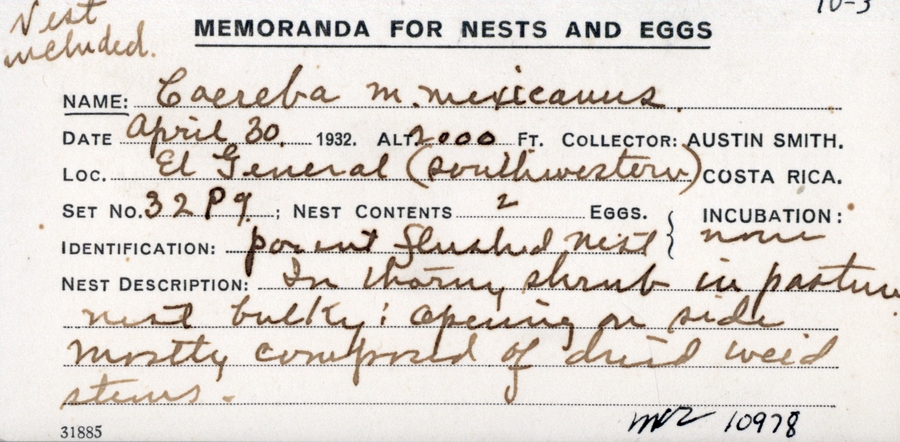 Nest
included.
10-3
MEMORANDA FOR NESTS AND EGGS
NAME: Coereba m. mexicanus
DATE April 30. 1932. ALT. 2000 FT. COLLECTOR: AUSTIN SMITH.
LOC. El General (southwestern) COSTA RICA.
SET NO. 32 P 9. ; NEST CONTENTS 2 EGGS. { INCUBATION:
IDENTIFICATION: parent flushed nest none
NEST DESCRIPTION: In thorny shrub in pasture
nest bulky; opening on side
mostly composed of dried weed
stems.
31885
mcz 10978